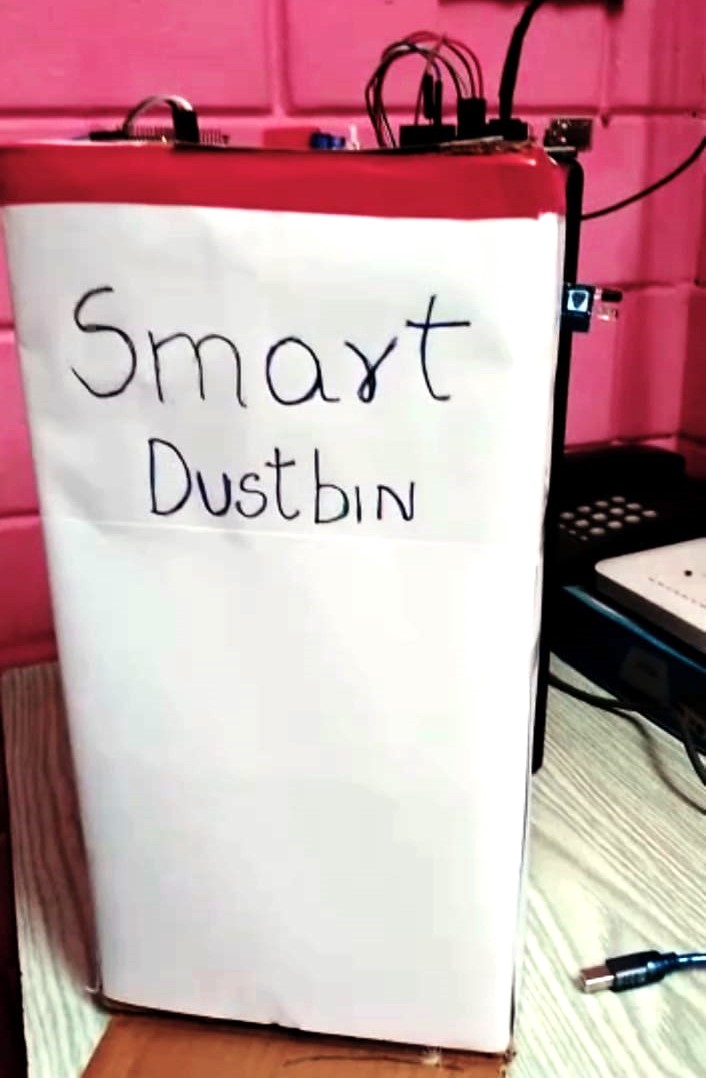 Smart
DustbIN